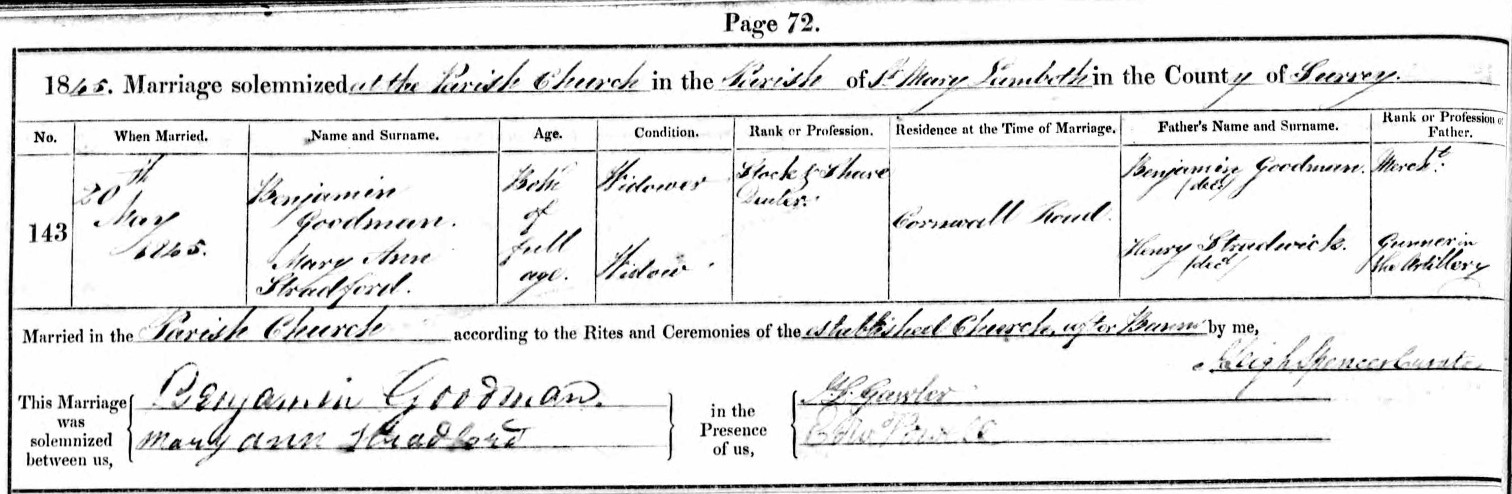 Page 72.
1845. Marriage solemnized at the Parish Church in the Parish of St Mary Lambeth in the County of Surrey.
No. When Married. Name and Surname. Age. Condition. Rank or Profession. Residence at the Time of Marriage. Father's Name and Surname. Rank or Profession of Father.
143
20th
May
1845.
Benjamin
Goodman.
Mary Ann
Stradford.
Both
of
full
age.
Widower
Widow
Stock & Share
Dealer.
Cornwall Road.
Benjamin Goodman.
(decd)
Henry Stradwick.
(decd)
Mercht.
Gunner in
the Artillery
Married in the Parish Church according to the Rites and Ceremonies of the established Church, after Banns by me,
Leigh Spencer Curate
This Marriage was solemnized between us,
Benjamin Goodman.
Mary ann Stradford
in the Presence of us,
Gawler
Powell